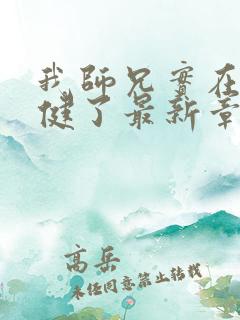 我師兄實在
健了最新章
高岳
未经同意禁止转载